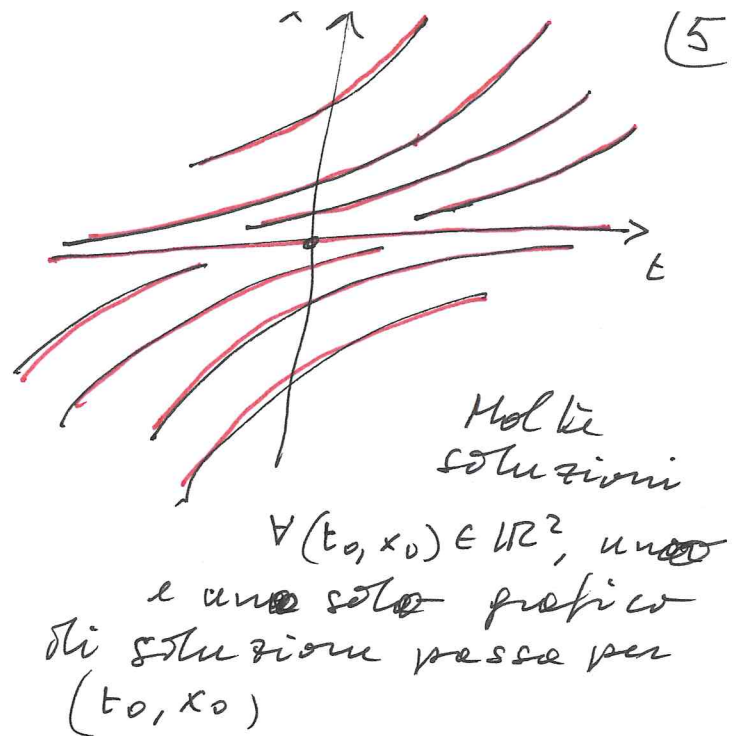 x
(5
t
Molte
soluzioni
∀(t₀, x₀) ∈ ℝ², uno
e uno solo grafico
di soluzione passa per
(t₀, x₀)